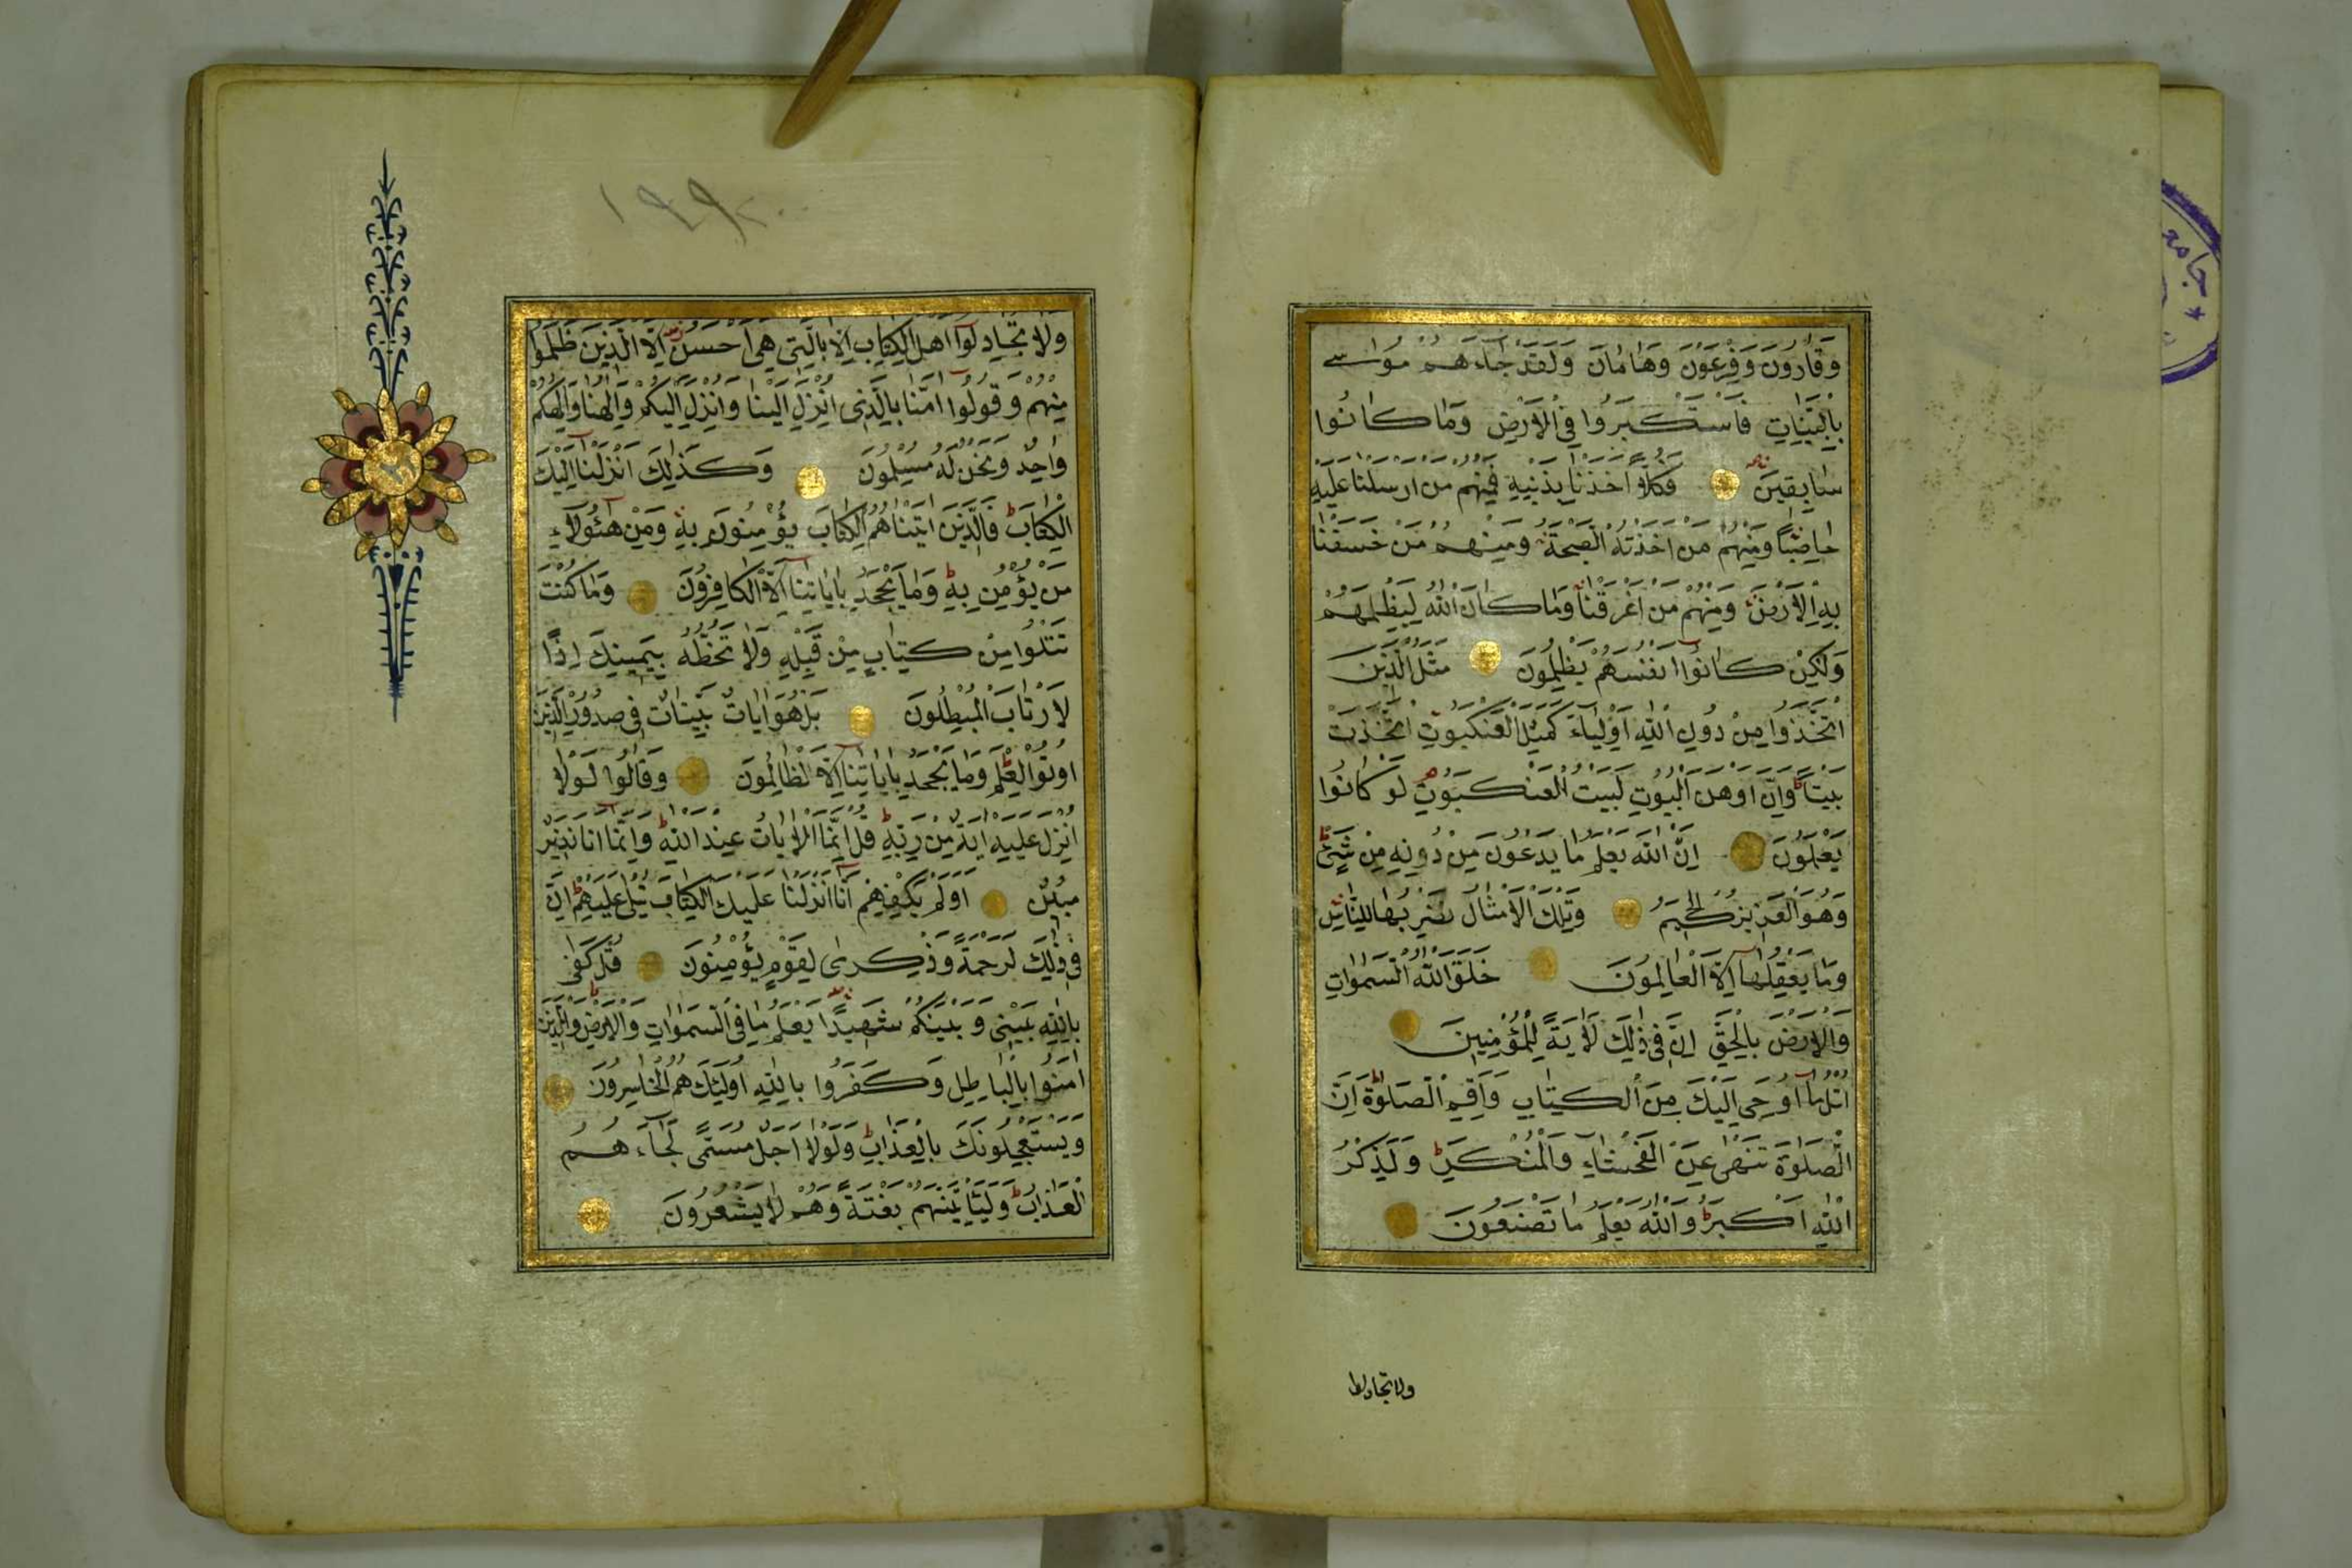 وَقَارُونَ وَفِرْعَوْنَ وَهَامَانَ وَلَقَدْ جَاءَهُمْ مُوسٰى
بِالْبَيِّنَاتِ فَاسْتَكْبَرُوا فِي الْاَرْضِ وَمَا كَانُوا
سَابِقِينَ فَكُلًّا اَخَذْنَا بِذَنْبِهِ فَمِنْهُمْ مَنْ اَرْسَلْنَا عَلَيْهِ
حَاصِبًا وَمِنْهُمْ مَنْ اَخَذَتْهُ الصَّيْحَةُ وَمِنْهُمْ مَنْ خَسَفْنَا
بِهِ الْاَرْضَ وَمِنْهُمْ مَنْ اَغْرَقْنَا وَمَا كَانَ اللّٰهُ لِيَظْلِمَهُمْ
وَلٰكِنْ كَانُوا اَنْفُسَهُمْ يَظْلِمُونَ مَثَلُ الَّذِينَ
اتَّخَذُوا مِنْ دُونِ اللّٰهِ اَوْلِيَاءَ كَمَثَلِ الْعَنْكَبُوتِ اتَّخَذَتْ
بَيْتًا وَاِنَّ اَوْهَنَ الْبُيُوتِ لَبَيْتُ الْعَنْكَبُوتِ لَوْ كَانُوا
يَعْلَمُونَ اِنَّ اللّٰهَ يَعْلَمُ مَا يَدْعُونَ مِنْ دُونِهِ مِنْ شَيْءٍ
وَهُوَ الْعَزِيزُ الْحَكِيمُ وَتِلْكَ الْاَمْثَالُ نَضْرِبُهَا لِلنَّاسِ
وَمَا يَعْقِلُهَا اِلَّا الْعَالِمُونَ خَلَقَ اللّٰهُ السَّمٰوَاتِ
وَالْاَرْضَ بِالْحَقِّ اِنَّ فِي ذٰلِكَ لَاٰيَةً لِلْمُؤْمِنِينَ
اُتْلُ مَا اُوحِيَ اِلَيْكَ مِنَ الْكِتَابِ وَاَقِمِ الصَّلٰوةَ اِنَّ
الصَّلٰوةَ تَنْهٰى عَنِ الْفَحْشَاءِ وَالْمُنْكَرِ وَلَذِكْرُ
اللّٰهِ اَكْبَرُ وَاللّٰهُ يَعْلَمُ مَا تَصْنَعُونَ
ولا تجادلوا
جامعة
١٩٩
وَلَا تُجَادِلُوا اَهْلَ الْكِتَابِ اِلَّا بِالَّتِي هِيَ اَحْسَنُ اِلَّا الَّذِينَ ظَلَمُوا
مِنْهُمْ وَقُولُوا اٰمَنَّا بِالَّذِي اُنْزِلَ اِلَيْنَا وَاُنْزِلَ اِلَيْكُمْ وَاِلٰهُنَا وَاِلٰهُكُمْ
وَاحِدٌ وَنَحْنُ لَهُ مُسْلِمُونَ وَكَذٰلِكَ اَنْزَلْنَا اِلَيْكَ
الْكِتَابَ فَالَّذِينَ اٰتَيْنَاهُمُ الْكِتَابَ يُؤْمِنُونَ بِهِ وَمِنْ هٰؤُلَاءِ
مَنْ يُؤْمِنُ بِهِ وَمَا يَجْحَدُ بِاٰيَاتِنَا اِلَّا الْكَافِرُونَ وَمَا كُنْتَ
تَتْلُوا مِنْ قَبْلِهِ مِنْ كِتَابٍ وَلَا تَخُطُّهُ بِيَمِينِكَ اِذًا
لَارْتَابَ الْمُبْطِلُونَ بَلْ هُوَ اٰيَاتٌ بَيِّنَاتٌ فِي صُدُورِ الَّذِينَ
اُوتُوا الْعِلْمَ وَمَا يَجْحَدُ بِاٰيَاتِنَا اِلَّا الظَّالِمُونَ وَقَالُوا لَوْلَا
اُنْزِلَ عَلَيْهِ اٰيَةٌ مِنْ رَبِّهِ قُلْ اِنَّمَا الْاٰيَاتُ عِنْدَ اللّٰهِ وَاِنَّمَا اَنَا نَذِيرٌ
مُبِينٌ اَوَلَمْ يَكْفِهِمْ اَنَّا اَنْزَلْنَا عَلَيْكَ الْكِتَابَ يُتْلٰى عَلَيْهِمْ اِنَّ
فِي ذٰلِكَ لَرَحْمَةً وَذِكْرٰى لِقَوْمٍ يُؤْمِنُونَ قُلْ كَفٰى
بِاللّٰهِ بَيْنِي وَبَيْنَكُمْ شَهِيدًا يَعْلَمُ مَا فِي السَّمٰوَاتِ وَالْاَرْضِ وَالَّذِينَ
اٰمَنُوا بِالْبَاطِلِ وَكَفَرُوا بِاللّٰهِ اُولٰئِكَ هُمُ الْخَاسِرُونَ
وَيَسْتَعْجِلُونَكَ بِالْعَذَابِ وَلَوْلَا اَجَلٌ مُسَمًّى لَجَاءَهُمُ
الْعَذَابُ وَلَيَأْتِيَنَّهُمْ بَغْتَةً وَهُمْ لَا يَشْعُرُونَ